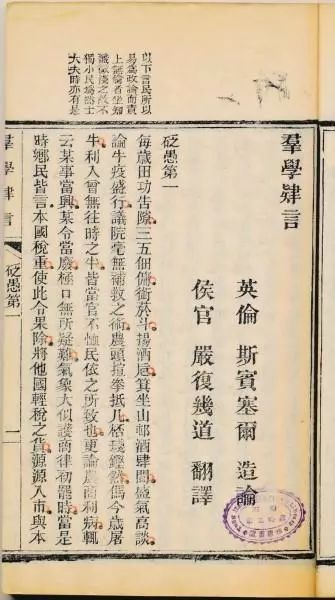 羣學肄言
英倫 斯賓塞爾 造論
侯官 嚴復幾道 翻譯
砭愚第一
每歲田功告隙三五佃傭銜菸斗揚酒巵箕坐山邨酒肆間盛氣高談
論牛疫盛行議院毫無補救之術農頭揎拳抵几桮琖鏗然偶今歲屠
牛利人曾無往時之半皆當官不恤民依之所致也更論農商利病輒
云某事當興某令當廢極口無所疑難氣象大似護商律初罷時當是
時鄉民皆言本國稅重使此令果除將他國輕稅之貨源源入市與本
以下言民所以
易為政論而責
上無論者坐知
識微淺之故不
獨小民為然士
大夫時亦有是
羣學肄言
砭愚第一